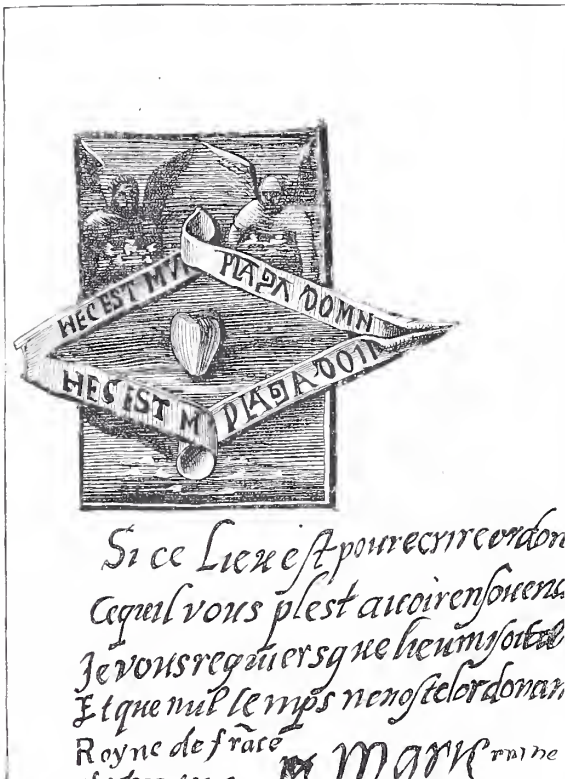 HEC EST MVN
PLAGA DOMN
HEC EST M
PLAGA DOII
Si ce Lieu est pour ecrire ordon
Ce quil vous plest auoir en souena
Je vous reguiers que lieu
Et que nul temps nen oste lordonan
Royne de frãce
Marie roine